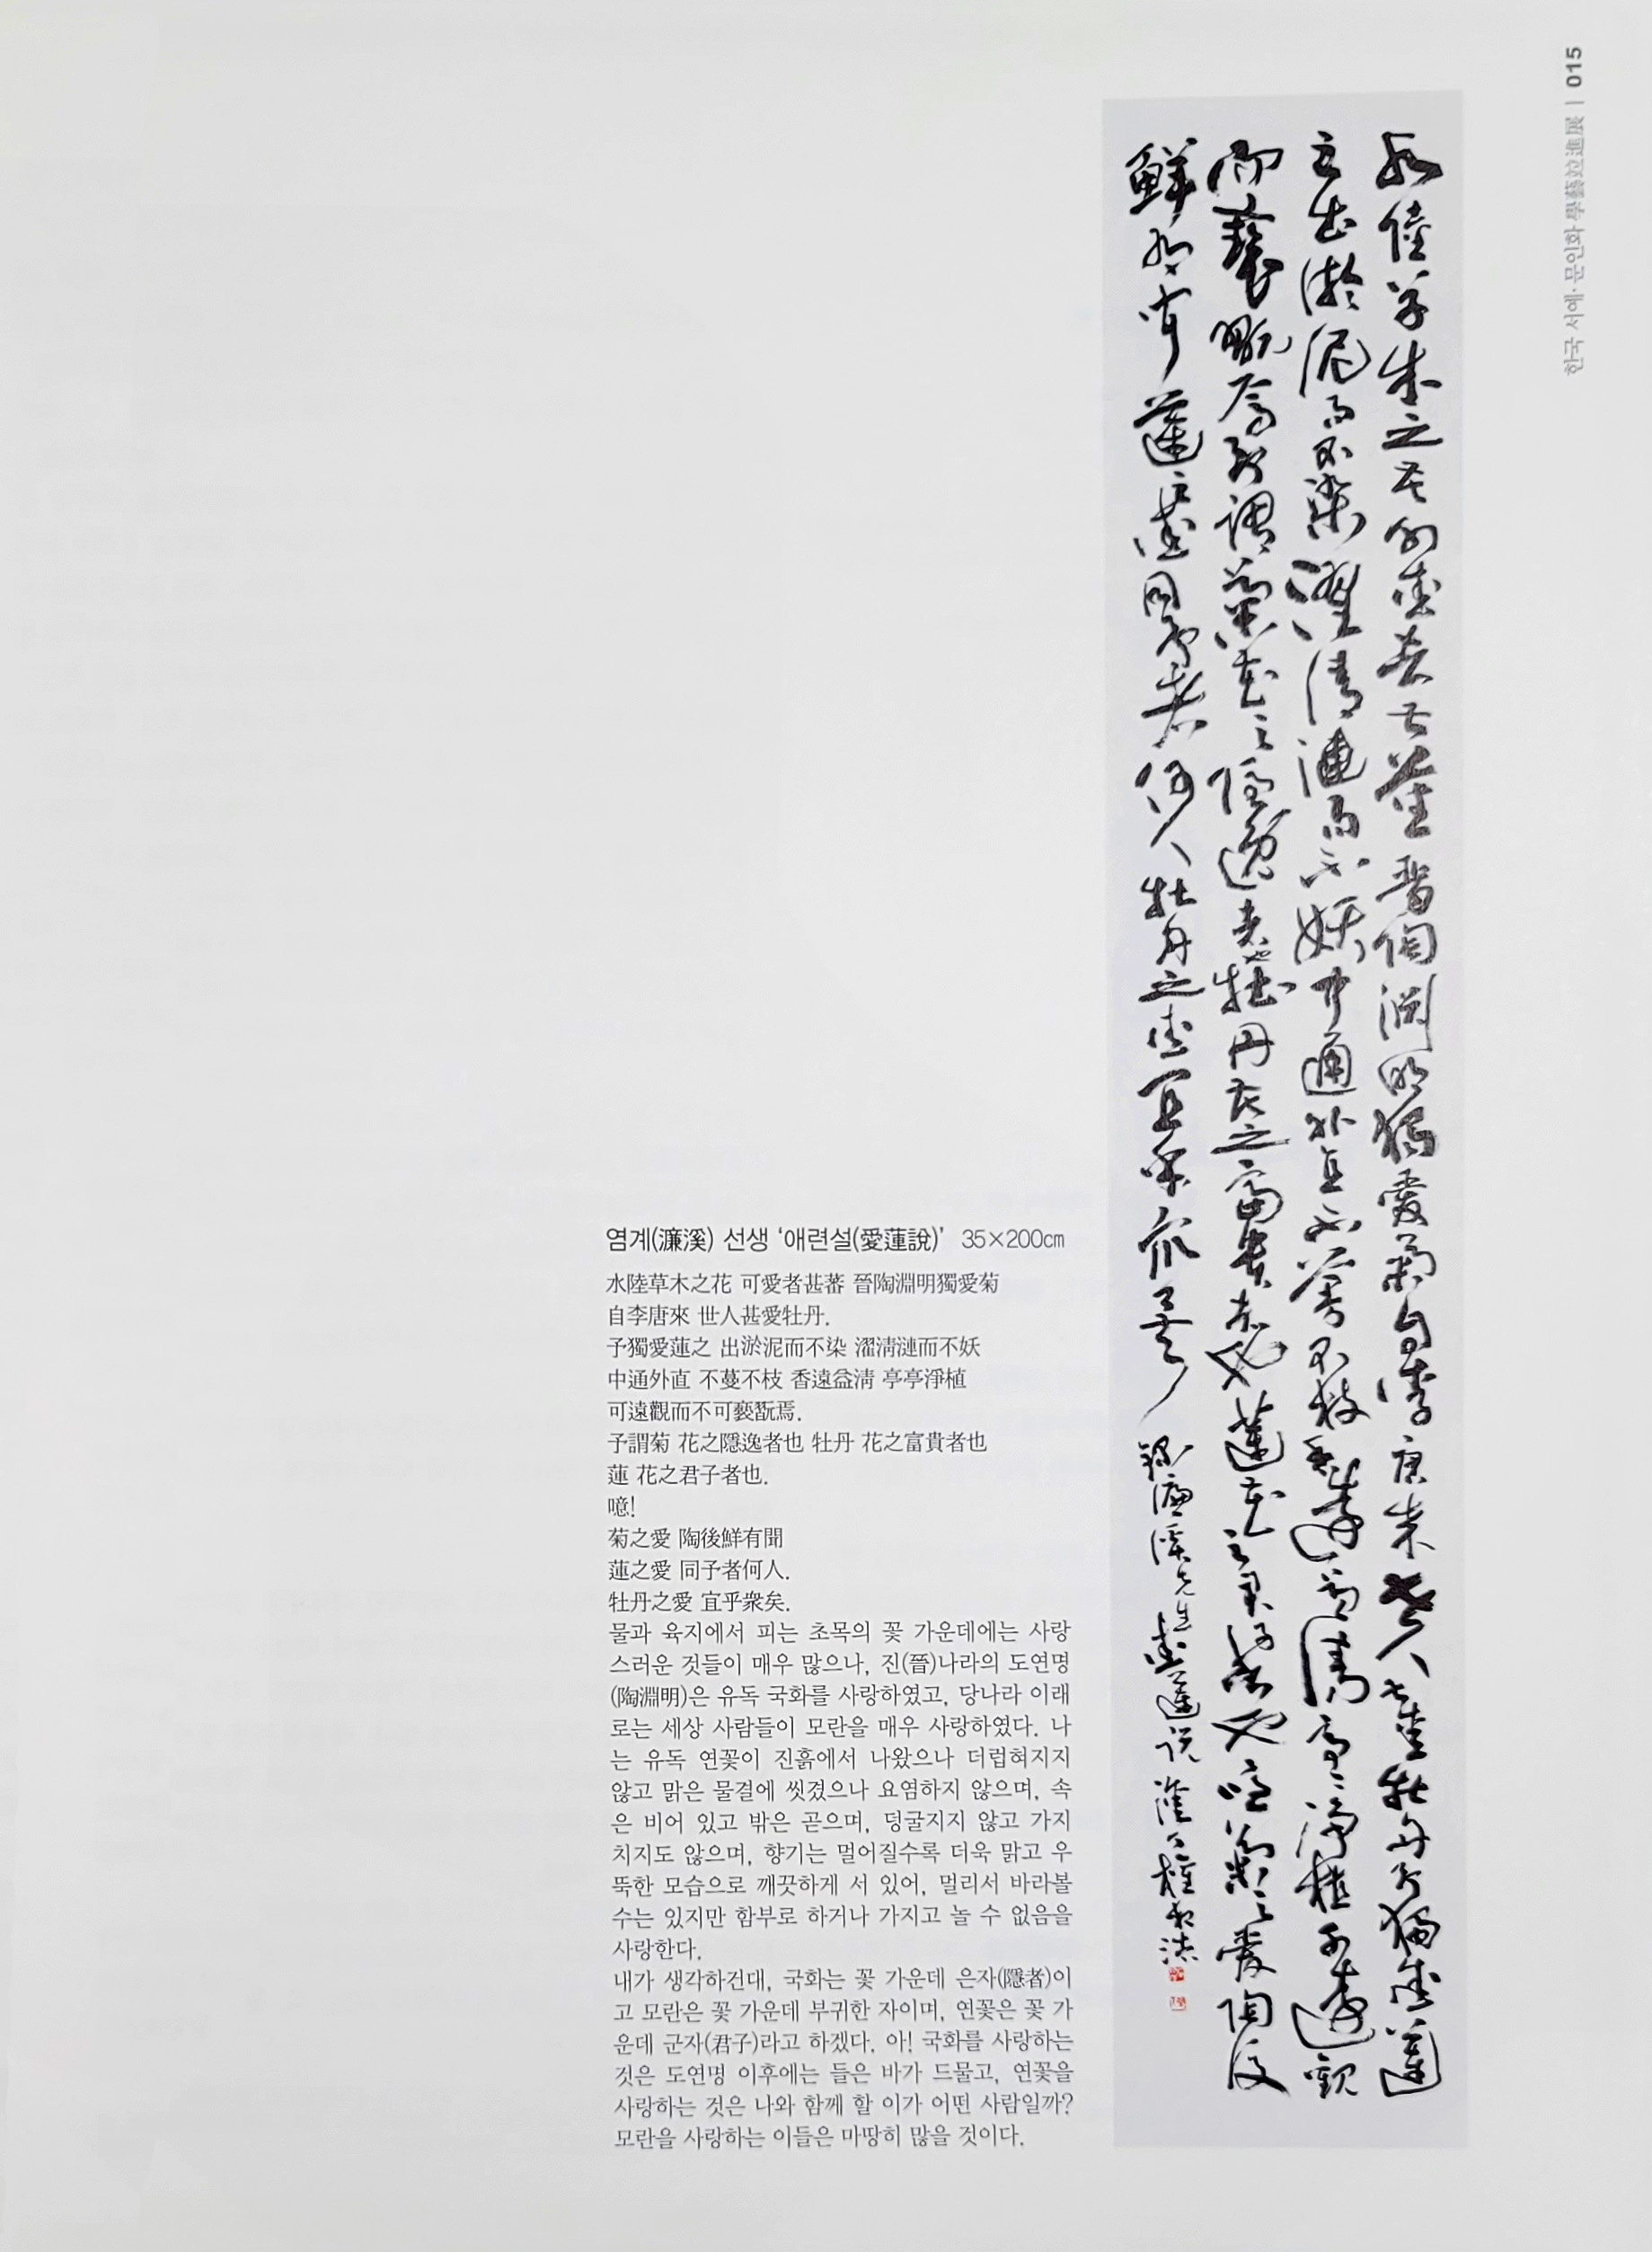 한국 서예·문인화 學藝竝進展 | 015
水陸草木之花可愛者甚蕃晋陶淵明獨愛菊自李唐来世人甚愛牡丹予獨愛蓮
之出淤泥而不染濯清漣而不妖中通外直不蔓不枝香遠益清亭亭淨植可遠觀
而褻翫焉予謂菊花之隱逸者也牡丹花之富貴者也蓮花之君子者也噫菊之愛陶後
鮮有聞蓮之愛同予者何人牡丹之愛宜乎衆矣 錄濂溪先生愛蓮說
염계(濂溪) 선생 ‘애련설(愛蓮說)’ 35×200㎝
水陸草木之花 可愛者甚蕃 晉陶淵明獨愛菊
自李唐來 世人甚愛牡丹.
予獨愛蓮之 出淤泥而不染 濯淸漣而不妖
中通外直 不蔓不枝 香遠益淸 亭亭淨植
可遠觀而不可褻翫焉.
予謂菊 花之隱逸者也 牡丹 花之富貴者也
蓮 花之君子者也.
噫!
菊之愛 陶後鮮有聞
蓮之愛 同予者何人.
牡丹之愛 宜乎衆矣.
물과 육지에서 피는 초목의 꽃 가운데에는 사랑
스러운 것들이 매우 많으나, 진(晉)나라의 도연명
(陶淵明)은 유독 국화를 사랑하였고, 당나라 이래
로는 세상 사람들이 모란을 매우 사랑하였다. 나
는 유독 연꽃이 진흙에서 나왔으나 더럽혀지지
않고 맑은 물결에 씻겼으나 요염하지 않으며, 속
은 비어 있고 밖은 곧으며, 덩굴지지 않고 가지
치지도 않으며, 향기는 멀어질수록 더욱 맑고 우
뚝한 모습으로 깨끗하게 서 있어, 멀리서 바라볼
수는 있지만 함부로 하거나 가지고 놀 수 없음을
사랑한다.
내가 생각하건대, 국화는 꽃 가운데 은자(隱者)이
고 모란은 꽃 가운데 부귀한 자이며, 연꽃은 꽃 가
운데 군자(君子)라고 하겠다. 아! 국화를 사랑하는
것은 도연명 이후에는 들은 바가 드물고, 연꽃을
사랑하는 것은 나와 함께 할 이가 어떤 사람일까?
모란을 사랑하는 이들은 마땅히 많을 것이다.